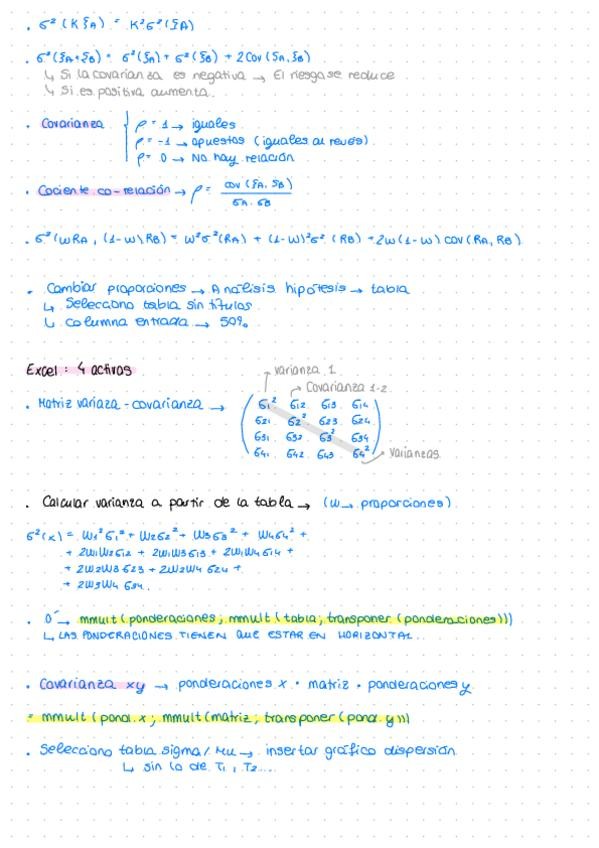 . σ² (K ξA) = K²σ²(ξA)
. σ²(ξA+ξB) = σ²(ξA) + σ²(ξB) + 2Cov(ξA, ξB)
↳ Si la covarianza es negativa → El riesgo se reduce
↳ Si es positiva aumenta.
. Covarianza ρ = 1 → iguales
ρ = -1 → apuestos (iguales al revés)
ρ = 0 → No hay relación
. Cociente co-relación → ρ = cov (ξA, ξB) / σA · σB
. σ² (wRA, (1-w) RB) = w²σ²(RA) + (1-w)²σ² (RB) + 2w(1-w) cov(RA, RB)
. Cambiar proporciones → Análisis hipótesis → tabla
↳ Selecciono tabla sin títulos
↳ columna entrada → 50%
Excel: 4 activos
→ varianza 1
→ Covarianza 1-2
. Matriz variaza - covarianza →
σ1² σ12 σ13 σ14
σ21 σ2² σ23 σ24
σ31 σ32 σ3² σ34
σ41 σ42 σ43 σ4² → varianzas
. Calcular varianza a partir de la tabla → (w → proporciones)
σ²(x) = W1²σ1² + W2σ2² + W3σ3² + W4σ4² +
+ 2W1W2σ12 + 2W1W3σ13 + 2W1W4σ14 +
+ 2W2W3σ23 + 2W2W4 σ24 +
+ 2W3W4 σ34.
. O → mmult(ponderaciones; mmult(tabla; transponer (ponderaciones)))
↳ LAS PONDERACIONES TIENEN QUE ESTAR EN HORIZONTAL.
. Covarianza xy → ponderaciones x · matriz · ponderaciones y
= mmult (pond. x; mmult(matriz; transponer (pond. y)))
. Selecciono tabla sigma/Mu → insertar gráfico dispersión
↳ sin lo de T1, T2....